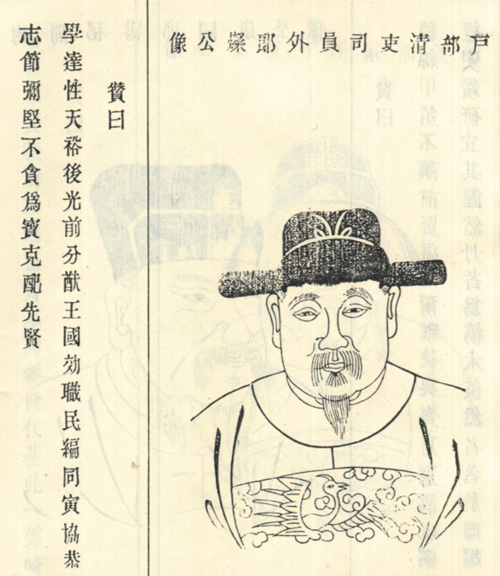 戶部清吏司員外郎燦公像
贊曰
學達性天裕後光前分猷王國効職民編同寅協恭
志節彌堅不貪爲寶克配先賢